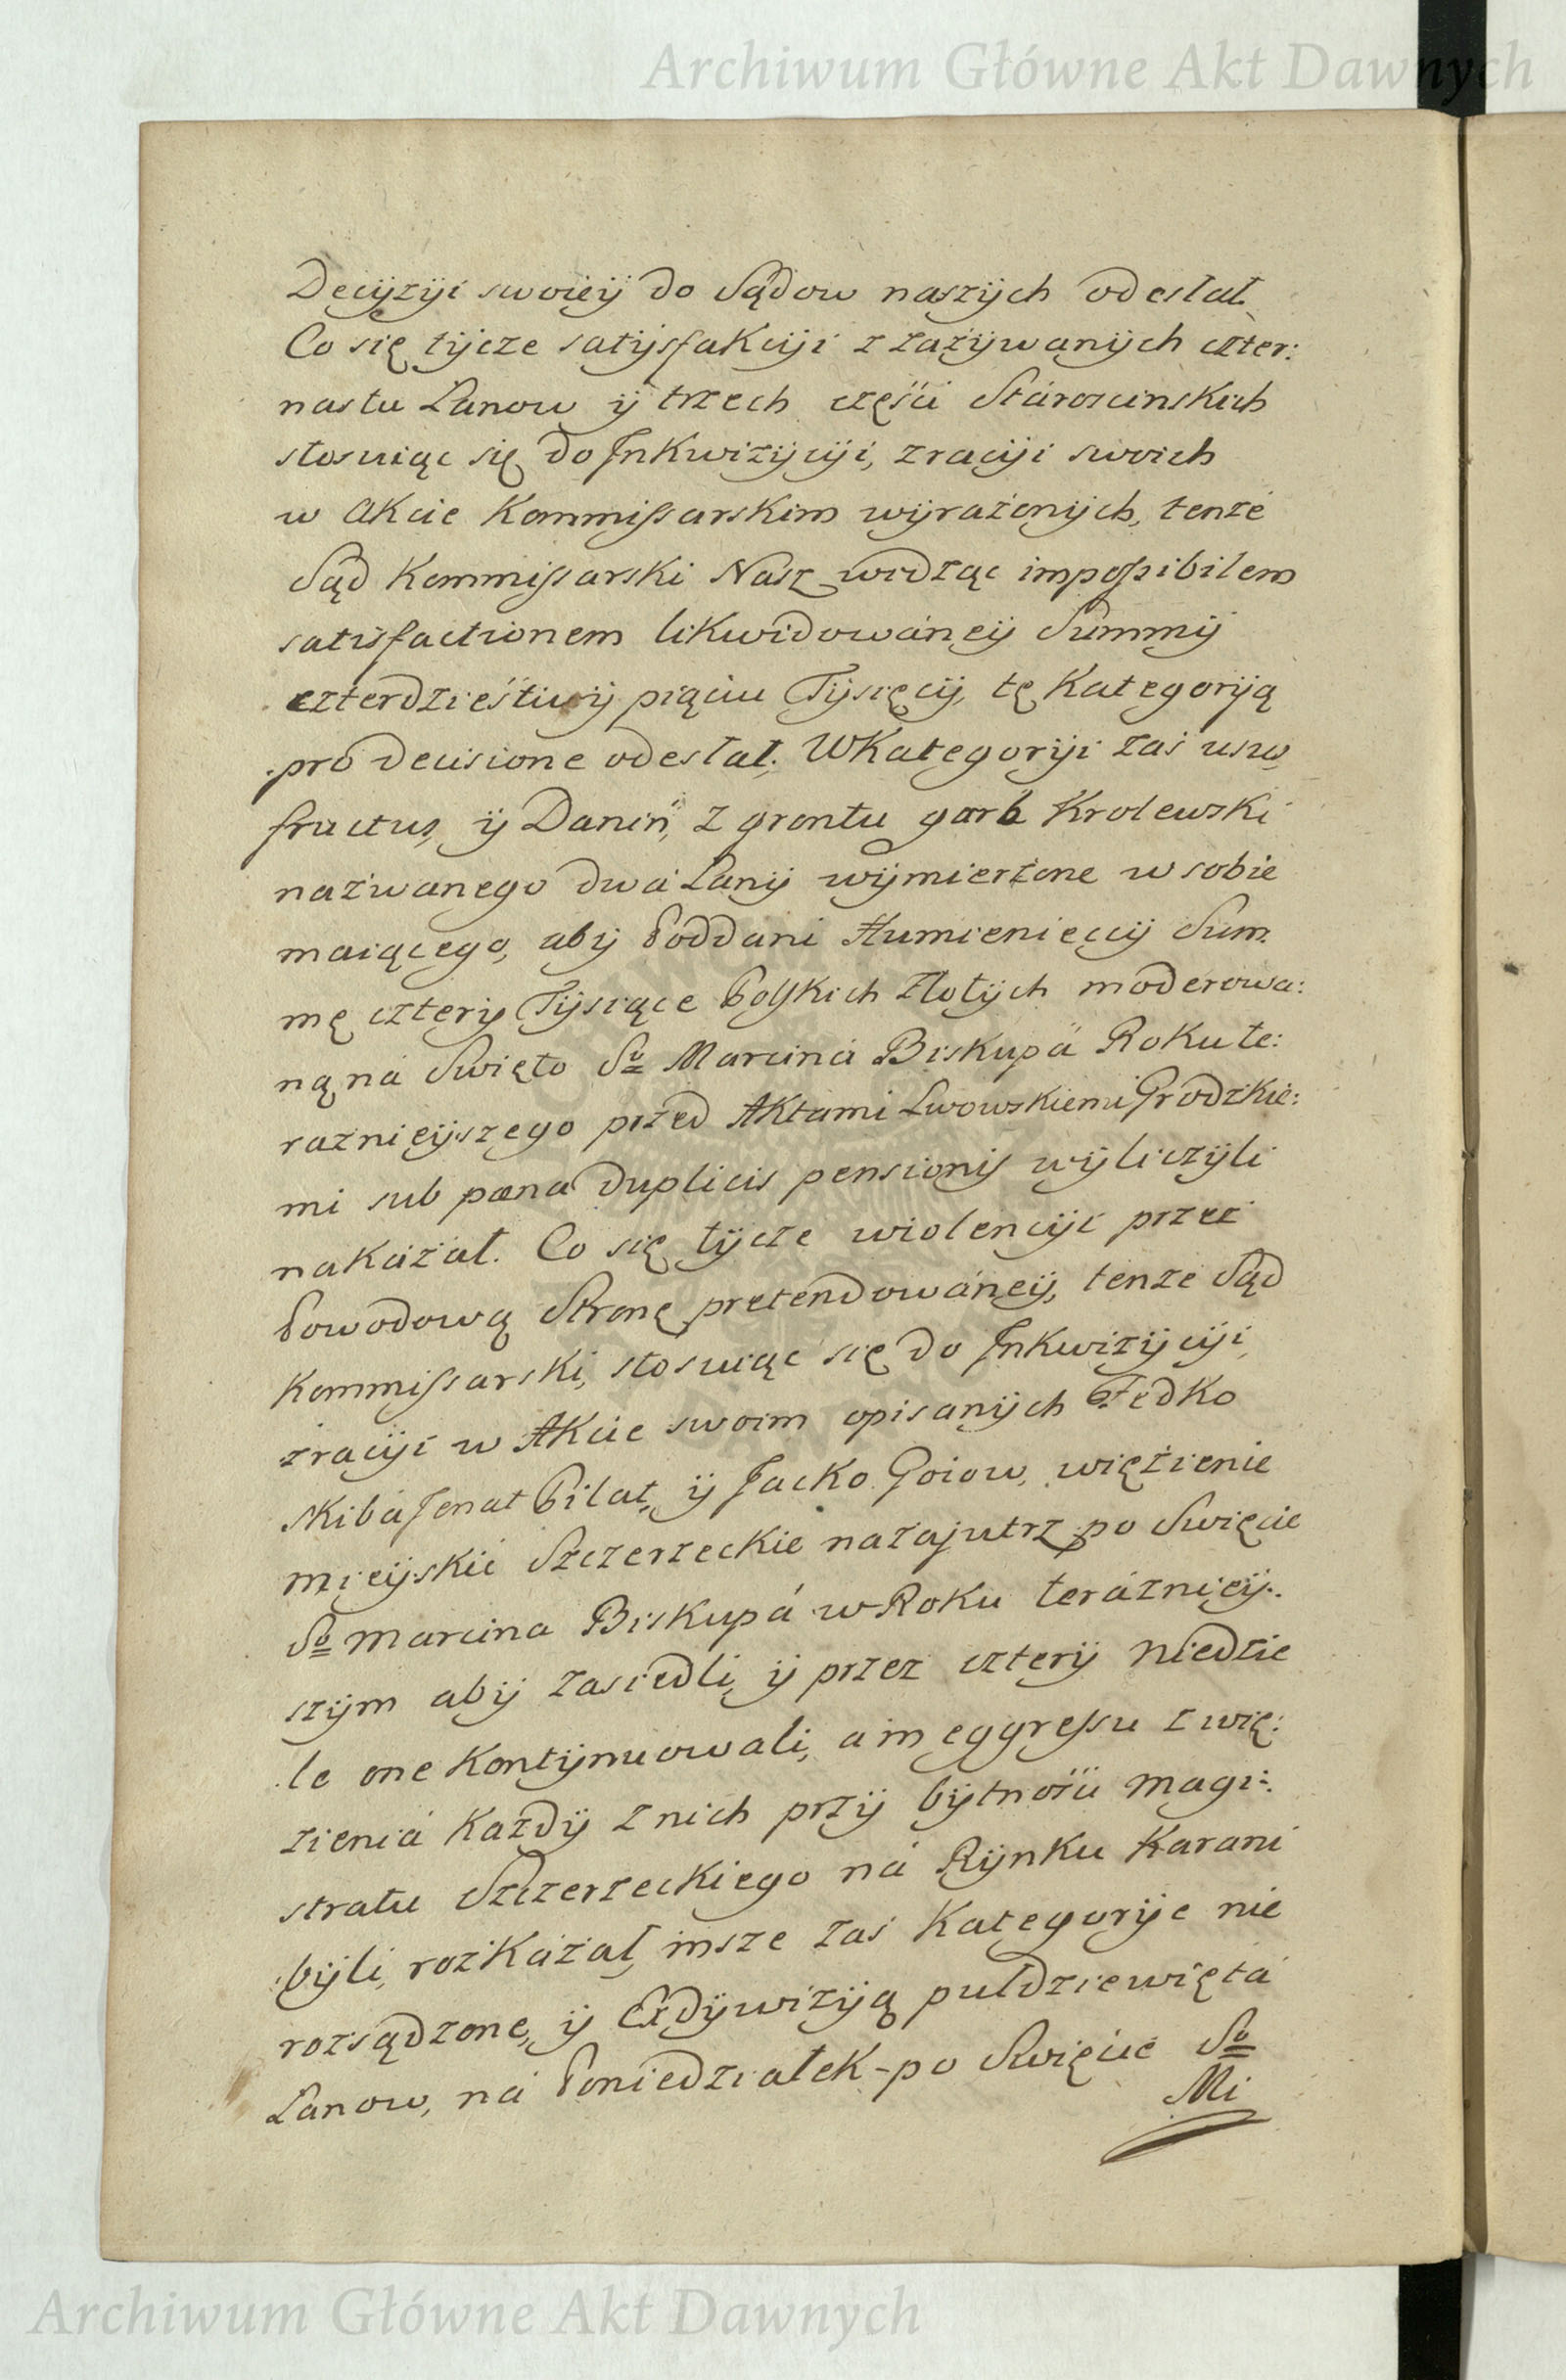 Archiwum Główne Akt Dawnych
Decyzyi swoiey do Sądow naszych odesłał.
Co się tycze satysfakcyi z zażywanych czter:
nastu Łanow y trzech części Starościnskich
stosuiąc się do Inkwizycyi, z racyi swoich
w Akcie Kommissarskim wyrażonych, tenże
Sąd Kommissarski Nasz widząc impossibilem
satisfactionem likwidowáney Summy
czterdziestu y piąciu Tysięcy, tę Kategoryą
pro decisione odesłał. W Kategoryi zaś usu
fructus, y Danin, z grontu garb Krolewski
nazwanego dwa Łany wymierzone w sobie
maiącego, aby Poddani Humienieccy Sum
mę cztery Tysiące Polskich Złotych moderowa:
ną ná Swięto So Marciná Biskupá Roku te:
raznieyszego przed Aktami Lwowskiemi Grodzkie:
mi sub pæna duplicis pensionis wyliczyli
nakazał. Co się tycze wiolencyi przez
Powodową Stronę pretendowáney, tenże Sąd
Kommissarski, stosuiąc się do Inkwizycyi,
z racyi w Akcie swoim opisanych Fedko
Skibá Jenat Piłat, y Jacko Goiow, więzienie
mieyskié Szczerzeckie nazajutrz po Swięcie
So Marcina Biskupá w Roku terázniey:
szym aby zasiedli, y przez cztery Niedzie
le one kontynuowali, a in eggressu z wię:
zieniá każdy z nich przy bytności Magi:
stratu Szczerzeckiego ná Rynku karani
byli, rozkazał, insze zaś Kategorye nie
rozsądzone, y Exdywizyą pułdziewiętá
Łanow, ná Poniedziałek po Swięcie So
Mi
Archiwum Główne Akt Dawnych